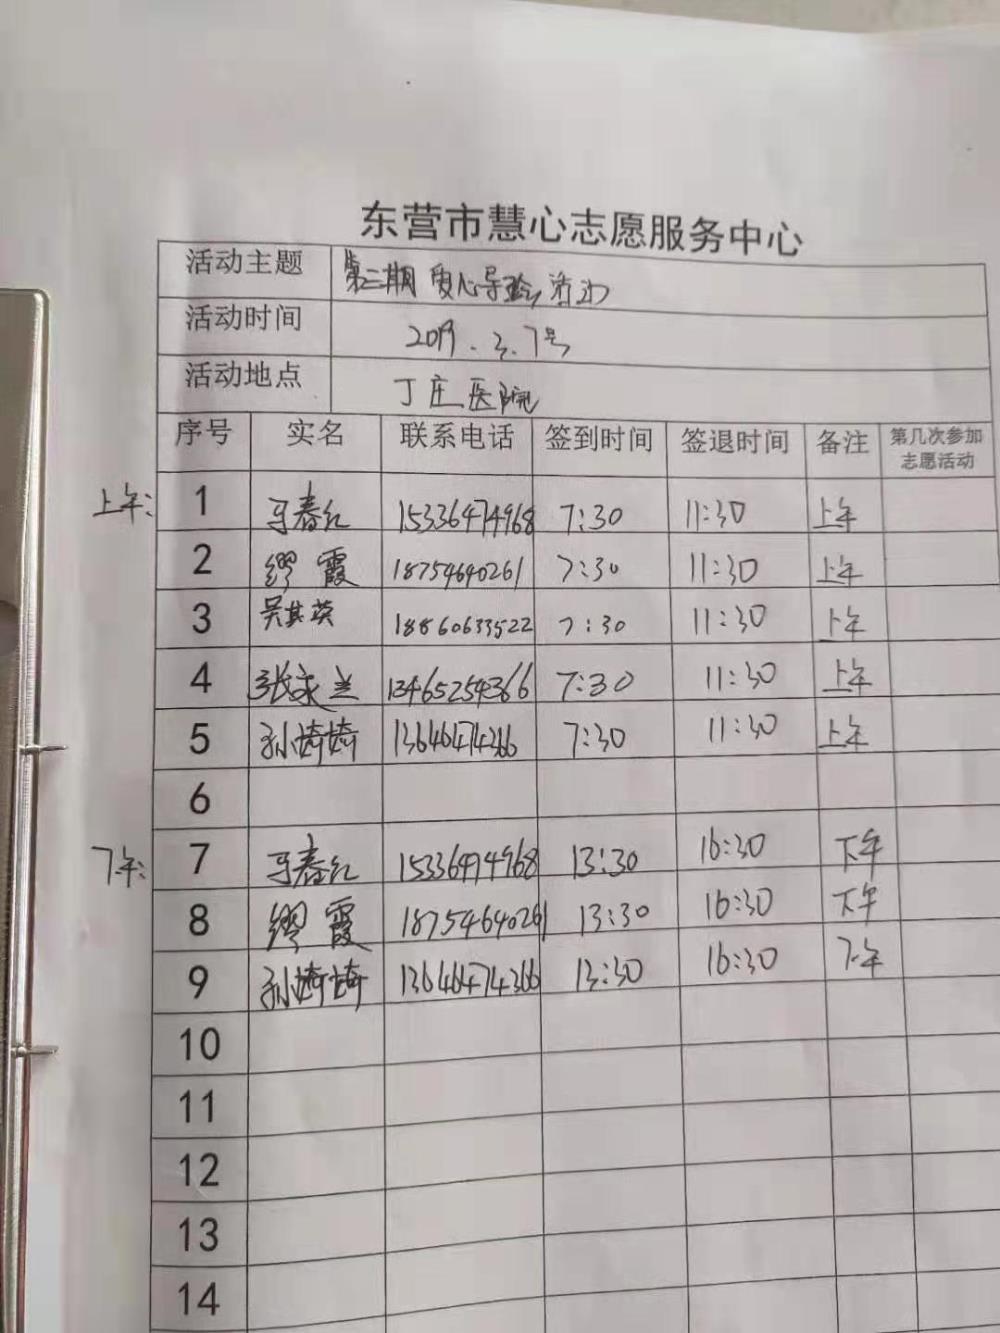 东营市慧心志愿服务中心
活动主题 第三期爱心导医活动
活动时间 2019.3.7号
活动地点 丁庄医院
序号 实名 联系电话 签到时间 签退时间 备注 第几次参加志愿活动
上午: 1 马春红 15336474968 7:30 11:30 上午
2 缪霞 18754640261 7:30 11:30 上午
3 吴其英 18860633522 7:30 11:30 上午
4 张永兰 13465254366 7:30 11:30 上午
5 孙婷婷 13646474366 7:30 11:30 上午
6
下午: 7 马春红 15336474968 13:30 16:30 下午
8 缪霞 18754640261 13:30 16:30 下午
9 孙婷婷 13646474366 13:30 16:30 下午
10
11
12
13
14